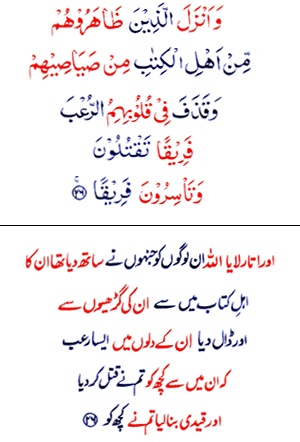 وَاَنْزَلَ الَّذِيْنَ ظَاهَرُوْهُمْ
مِّنْ اَهْلِ الْكِتٰبِ مِنْ صَيَاصِيْهِمْ
وَقَذَفَ فِىْ قُلُوْبِهِمُ الرُّعْبَ
فَرِيْقًا تَقْتُلُوْنَ
وَتَاْسِرُوْنَ فَرِيْقًا ۚ ﴿۲۶﴾
اور اتار لایا اللہ ان لوگوں کو جنہوں نے ساتھ دیا تھا ان کا
اہلِ کتاب میں سے ان کی گڑھیوں سے
اور ڈال دیا ان کے دلوں میں ایسا رعب
کہ ان میں سے کچھ کو تم نے قتل کر دیا
اور قیدی بنا لیا تم نے کچھ کو ﴿۲۶﴾